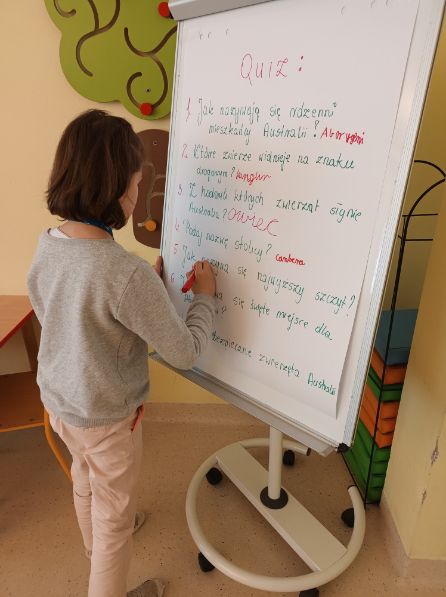 Quiz:
1. Jak nazywają się rdzenni
mieszkańcy Australii? Aborygeni
2. Które zwierze widnieje na znaku
drogowym? kangur
3. Z hodowli których zwierząt słynie
Australia? OWIEC
4. Podaj nazwę stolicy? Canberra
5. Jak nazywa się najwyższy szczyt?
6. się święte miejsce dla
zwierzęta Australii